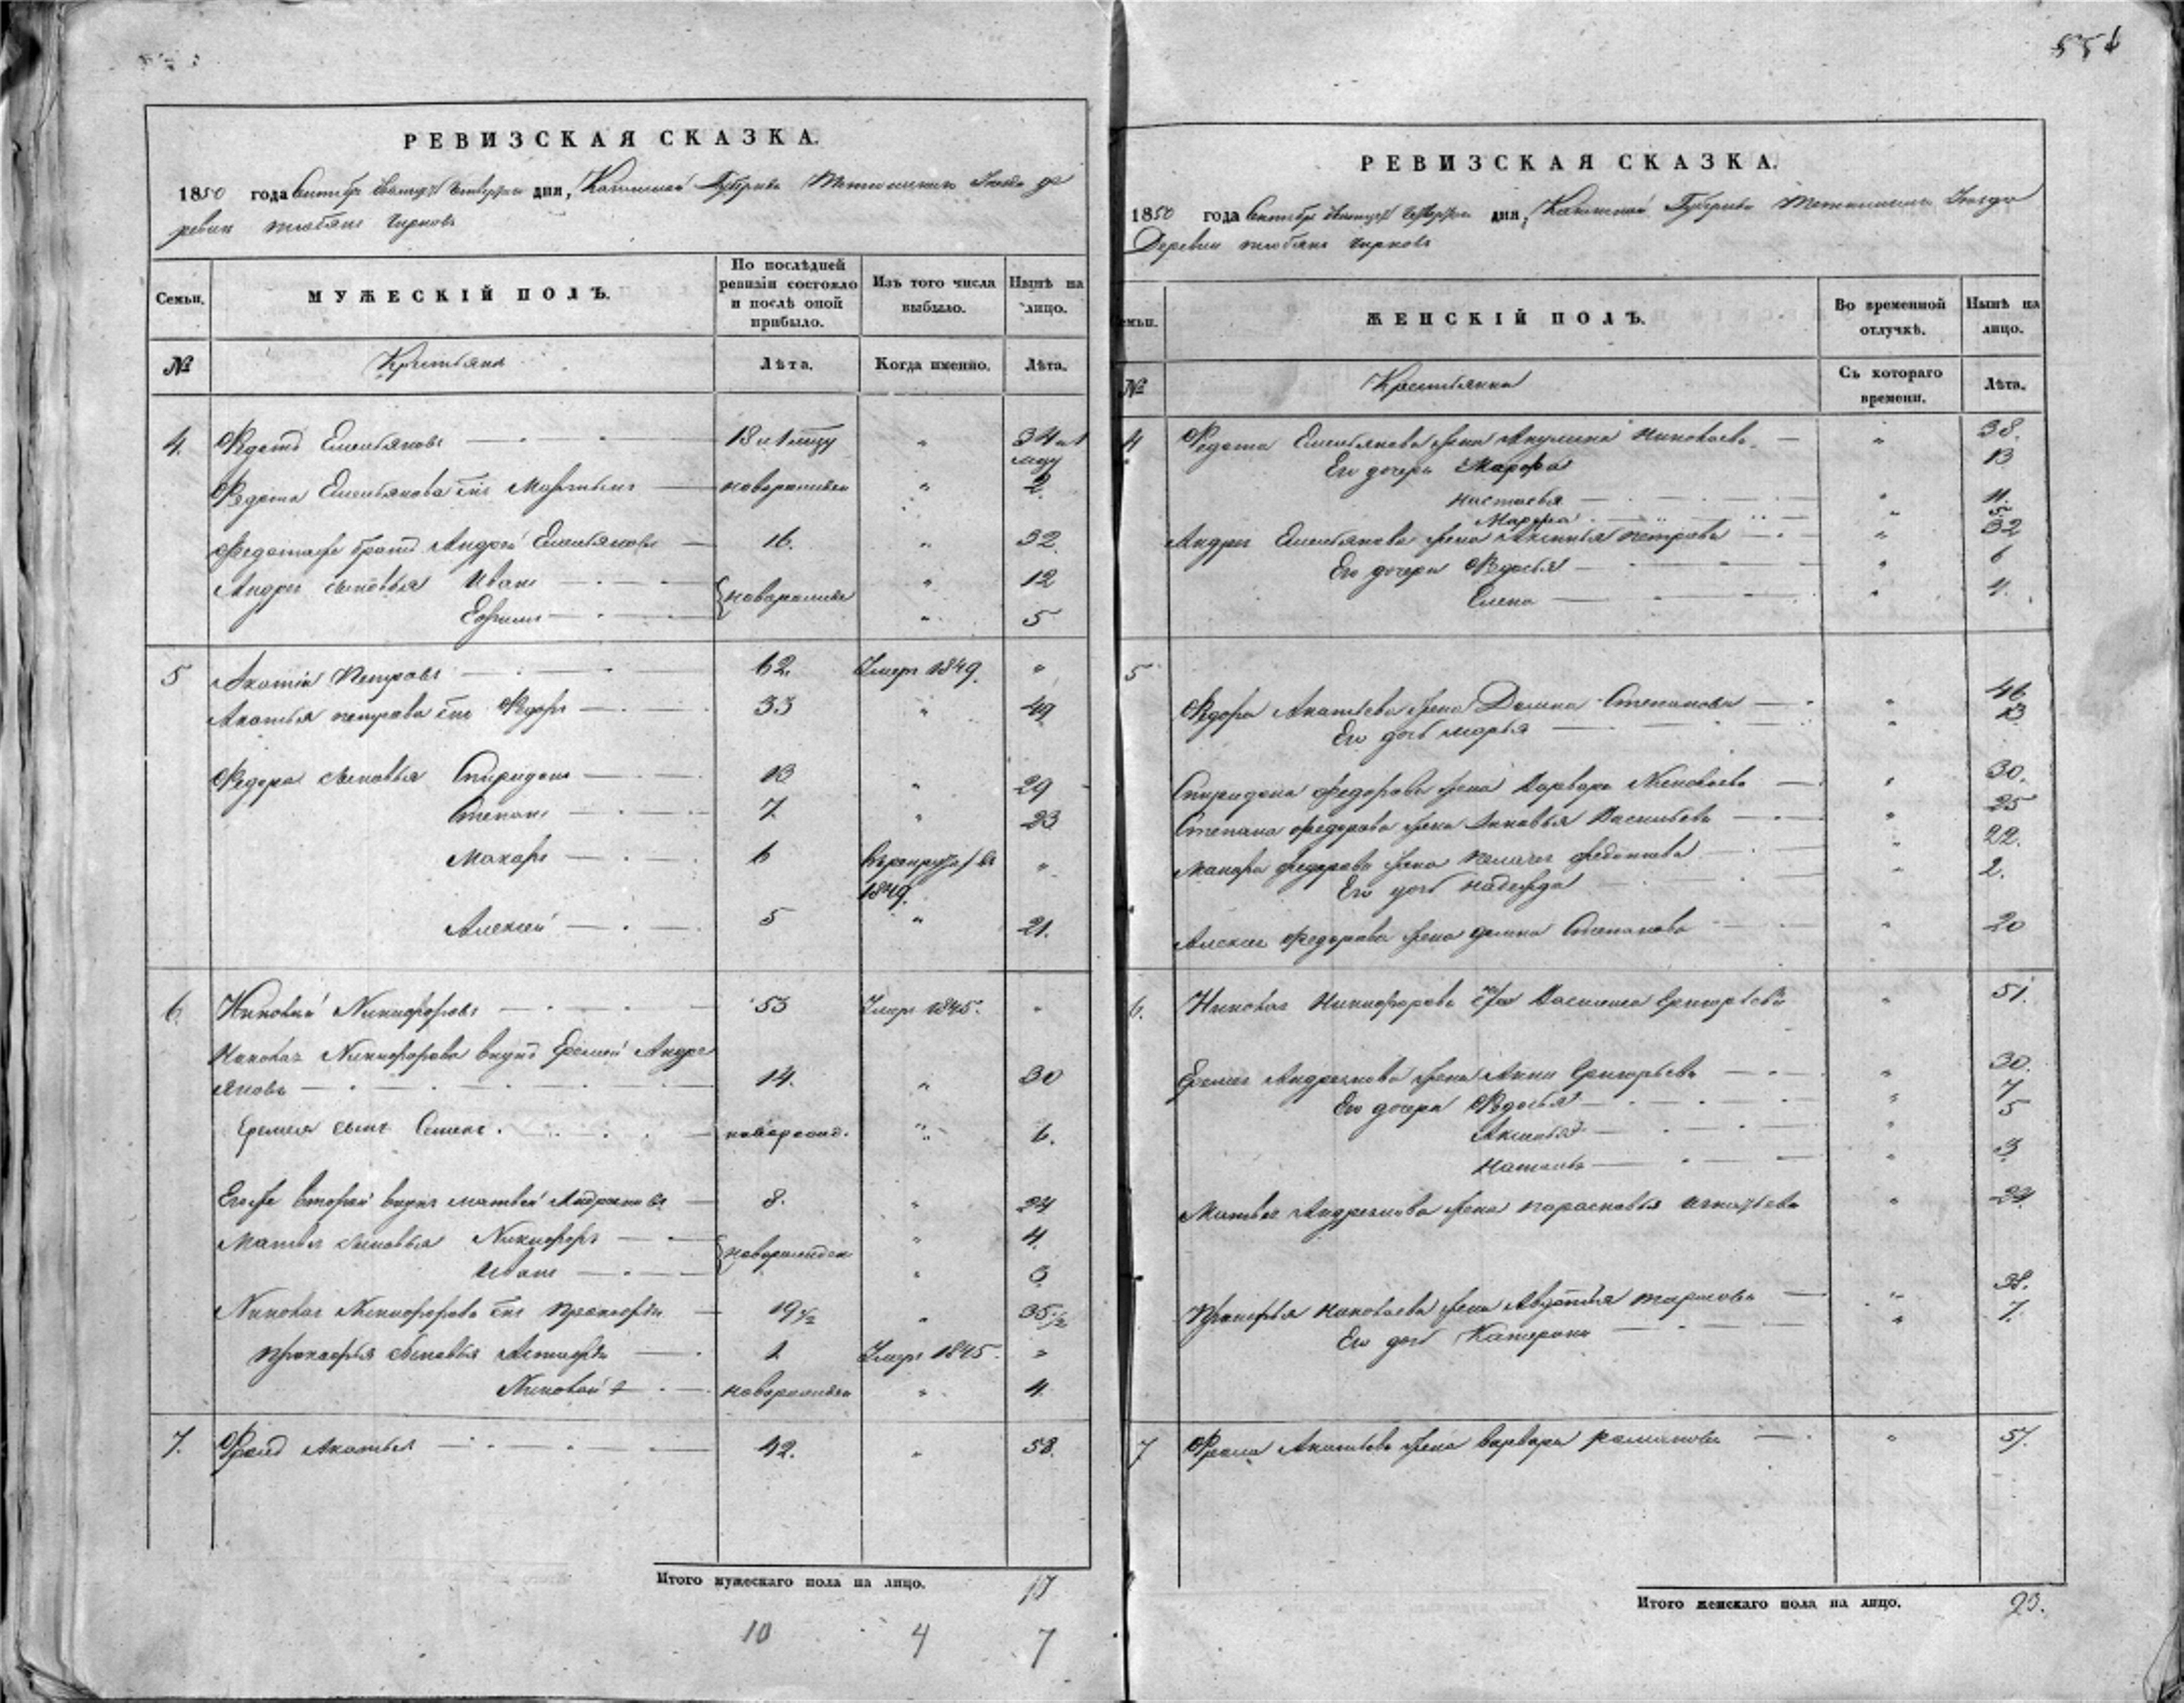 554
РЕВИЗСКАЯ СКАЗКА.
1850 года Сентября дня, Казанской Губернии Уезда де
ревни тюбяк чирков
Семьи. МУЖЕСКІЙ ПОЛЪ. По послѣдней ревизіи состояло и послѣ оной прибыло. Изъ того числа выбыло. Нынѣ на лицо.
№ Крестьяне Лѣта. Когда именно. Лѣта.
4. Федотъ Емельяновъ 18 и 1 мцу " 34 и 1 мцу
Федота Емельянова снъ новорожден " 2
Федотаже братъ Андрей Емельяновъ 16. " 32.
Андрея сыновья Иванъ " 12
Ефимъ новорожден " 5
5 Акатій Петровъ 62. Умеръ 1849. "
Акатья петрова снъ Федоръ 33 " 49
Федора сыновья Спиридонъ 13 " 29
Степанъ 7. " 23
Макаръ 6 въ рекруты въ 1849. "
Алексей 5 " 21.
6. Николай Никифоровъ 53 Умеръ 1845. "
Николая Никифорова внукъ Еремей Андре
яновъ 14. " 30
Еремея сынъ Семенъ новорожд. " 6.
Егоже второй внукъ матвей Андреяновъ 8. " 24
Матвея сыновья Никифоръ " 4.
Иванъ новорожден "
Николая Никифорова снъ Прокофій 19 1/2 " 35 1/2
Прокофья сыновья 1 Умеръ 1845. "
Николай новорожден " 4.
7. Фролъ Акатьев 42. " 58.
Итого мужескаго пола на лицо. 17
10 4 7
РЕВИЗСКАЯ СКАЗКА.
1850 года Сентября дня, Казанской Губерніи Уезда
Деревни тюбяк чирковъ
Семьи. ЖЕНСКІЙ ПОЛЪ. Во временной отлучкѣ. Нынѣ на лицо.
№ Крестьянки Съ котораго времени. Лѣта.
4 Федота Емельянова жена Акулина Николаева " 38.
Его дочери Марфа 13
настасья " 11.
Марфа " 5
Андрея Емельянова жена Аксинья петрова " 32
Его дочери Федосья " 6
Елена " 4.
5 Федора Акатьева жена Домна Степанова " 46
Его дочь марья " 13
Спиридона федорова жена Варвара Николаева " 30.
Степана федорова жена Зиновья Васильева " 25
Макара федорова жена пелагея " 22.
Его дочь надежда " 2.
Алексея Федорова жена домна Степанова " 20
6. Николая Никифорова жена Василиса Григорьева " 51.
Еремея Андреянова жена Анна Григорьева " 30.
Его дочери Федосья " 7
Аксинья " 5
наталья " 3
Матвея Андреянова жена парасковья игнатьева " 24
Прокофья николаева жена Авдотья тарасова " 38.
Его дочь Катерина " 7.
7 Фрола Акатьева жена варвара романова " 57.
Итого женскаго пола на лицо. 23.